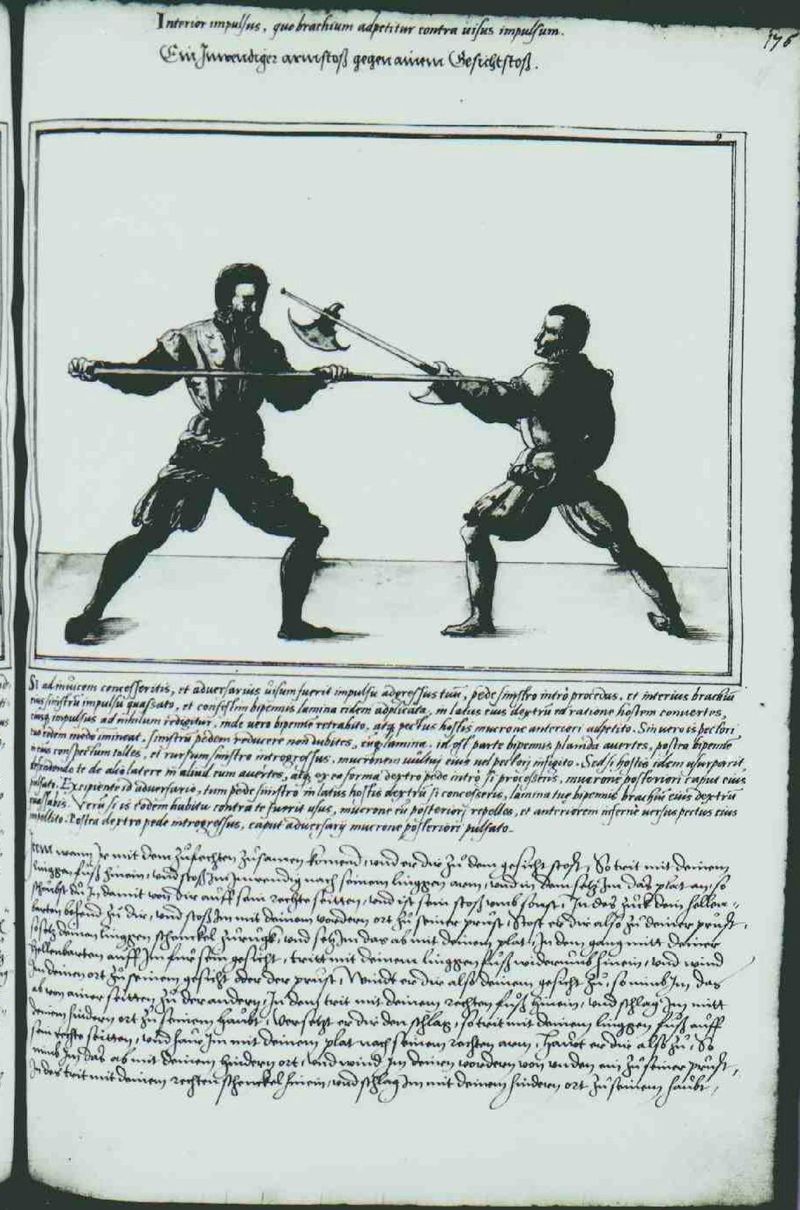 Interior impulsus, quo brachium adpetitur contra visus impulsum.
176
Ein Inwendiger armstoß gegen ainem Gesichtstoß.
9
Si ad invicem concesseritis, et adversarius visum fuerit impulsu adgressus tuum, pede sinistro intro procedas, et interius brachium
eius sinistrum impulsu quassato, et confestim bipennis lamina eidem adplicata, in latus eius dextrum ea ratione hostem convertes,
eiusq impulsus ad nihilum redigitur, inde vero bipennem retrahito, atq pectus hostis mucrone anteriori adpetito. Sin vero is pectori
tuo eodem modo immineat, sinistrum pedem reducere non dubites, eumq lamina, id est parte bipennis planicia avertes, postea bipennem
in eius conspectum tolles, et rursum sinistro introgressus, mucronem vultui eius vel pectori infigito. Sed si hostis idem usurparit,
de alio latere in aliud eum avertes, atq ex ea forma dextro pede intro si processeris, mucrone posteriori caput eius
pulsato. Excipiente id adversario, tum pede sinistro in latus hostis dextrum si concesseris, lamina tuae bipennis brachium eius dextrum
quassabis. Verum si is eodem habitu contra te fuerit usus, mucrone eum posteriori repelles, et anteriorem inferne versus pectus eius
impellito. Postea dextro pede introgressus, caput adversarij mucrone posteriori pulsato.
Item wann Ir mit dem zufechten zusamen komend, und er dir zu dem gesicht stost, So trit mit deinem
linggen fuß hinein, und stoß Im Inwendig nach seinem linggen arm, und in dem setz Im das plat an, so
schubst du In damit von dir auff sein rechte seitten, und ist sein stoß umb sonst, In des zuck dein hellen-
barten behend zu dir, und stoß Im mit deinem vordern ort zu seiner prust, Stost er dir also zu deiner prust,
so setz deinen linggen schenckel zurugk, und setz Im das ab mit deinem plat, In dem gang mitt deiner
Hellenbarten auff Im für sein gesicht, trit mit deinem linggen fuß widerumb hinein, und wind
Im deinen ort zu seinem gesicht oder der prust, Windt er dir also deinem gesicht zu, so nimb Im das
ab von ainer seitten zu der andern, In des trit mit deinem rechten fuß hinein, und schlag Im mitt
deinem hindern ort zu seinem haubt, Versetzt er dir den schlag, so trit mit deinem linggen fuß auff
sein rechte seitten, und haw Im mit deinem plat nach seinem rechten arm, hawt er dir also zu, So
nimb Im das ab mit deinem hindern ort, und wind Im deinen vordern von unden ein zu seiner prust,
In des trit mit deinem rechten schenckel hinein, und schlag Im mit deinem hindern ort zu seinem haubt,